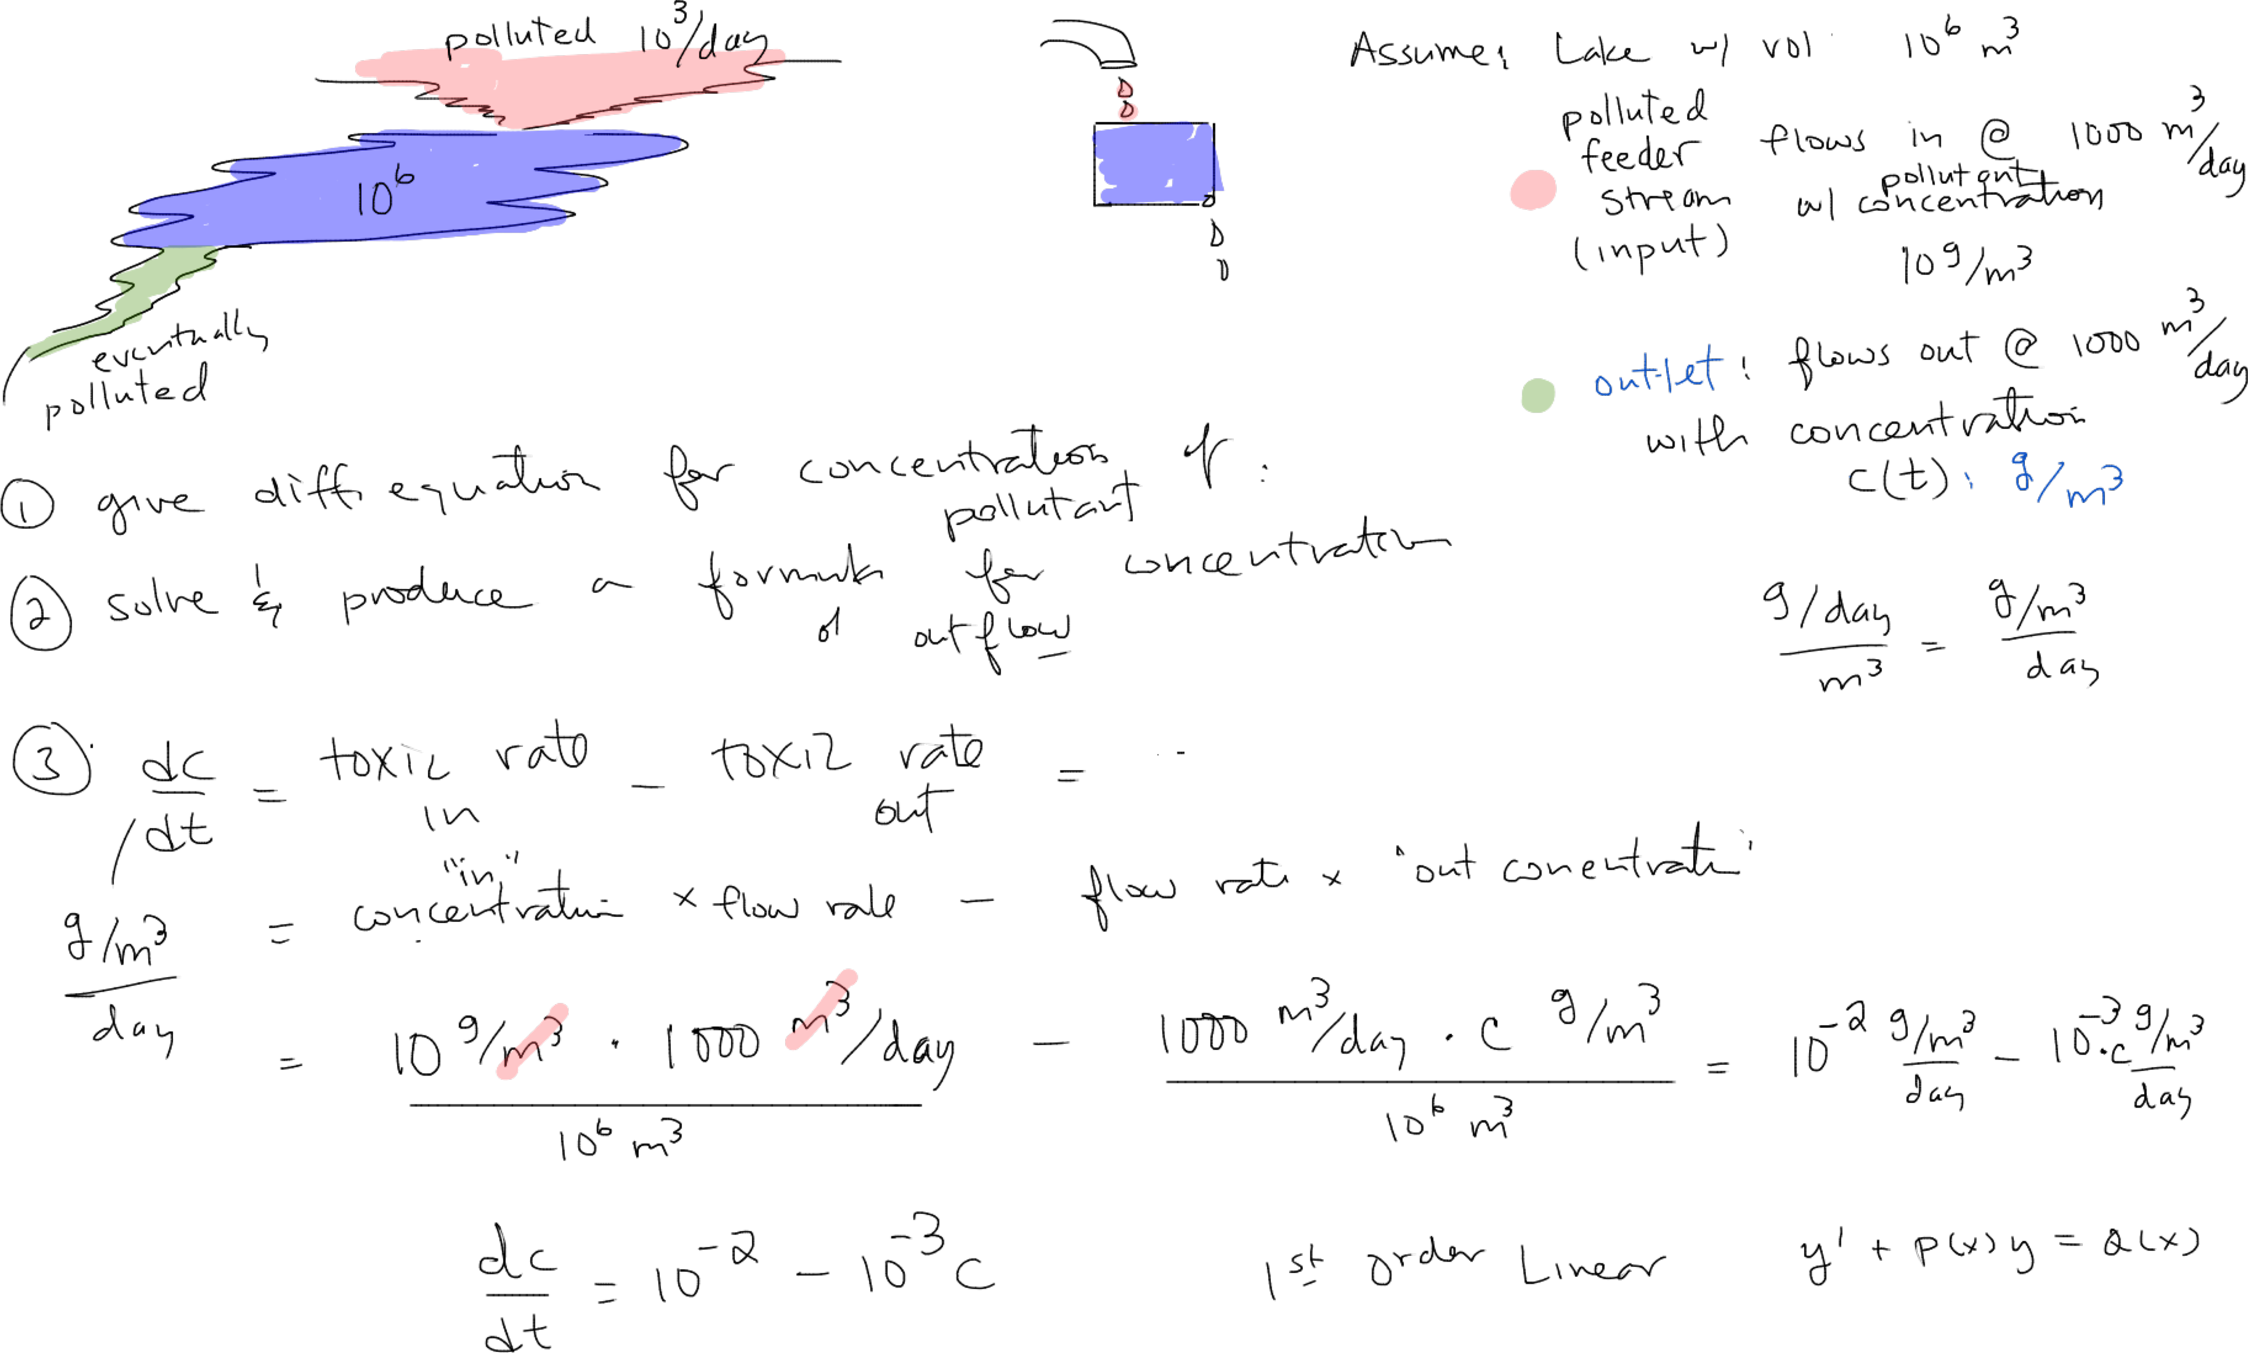 polluted 10^3/day
10^6
eventually
polluted
Assume: Lake w/ vol 10^6 m^3
polluted
feeder flows in @ 1000 m^3/day
pollutant
stream w/ concentration
(input) 10 g/m^3
outlet: flows out @ 1000 m^3/day
with concentration
c(t): g/m^3
① give diff. equation for concentration of :
pollutant
② solve & produce a formula for concentration
of outflow
g/day / m^3 = g/m^3 / day
③ dc/dt = toxic rate in - toxic rate out = . .
g/m^3 / day = "in" concentration × flow rate - flow rate × "out concentrati"
= 10 g/m^3 · 1000 m^3/day / 10^6 m^3 - 1000 m^3/day · c g/m^3 / 10^6 m^3 = 10^-2 g/m^3 / day - 10^-3 · c g/m^3 / day
dc/dt = 10^-2 - 10^-3 c 1st order Linear y' + p(x) y = Q(x)